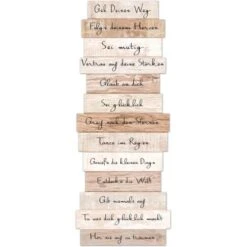 Geh Deinen Weg
Folge deinem Herzen
Sei mutig
Vertraue auf deine Stärken
Glaub an dich
Sei glücklich
Greif nach den Sternen
Tanze im Regen
Genieße die kleinen Dinge
Entdecke die Welt
Gib niemals auf
Tu was dich glücklich macht
Hör nie auf zu träumen